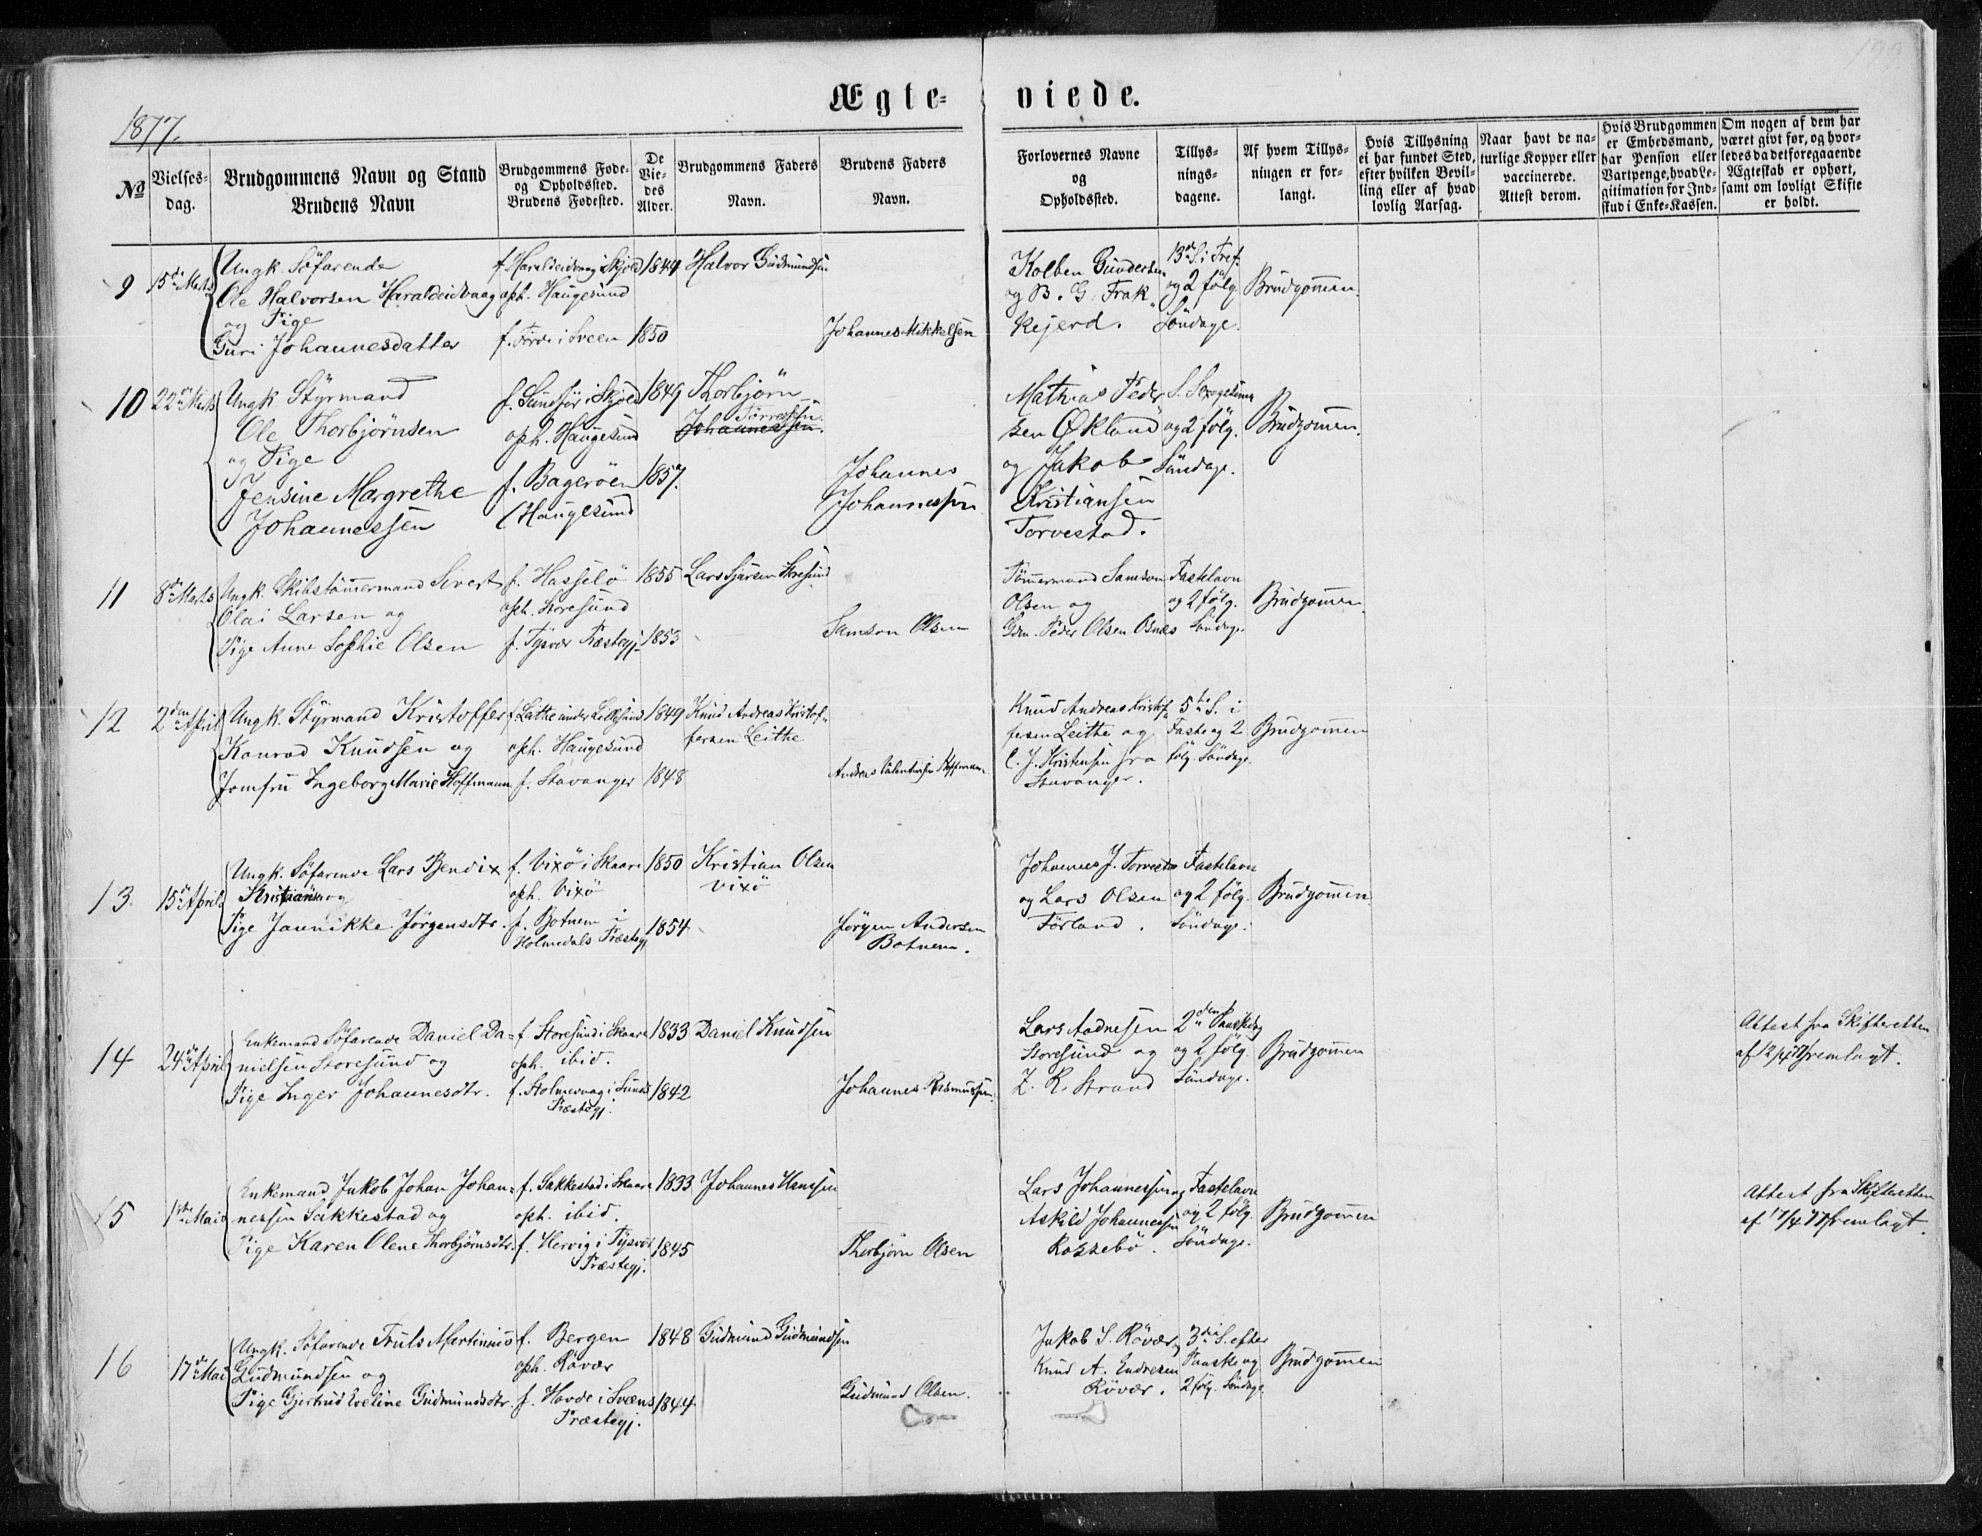 199.
Ægte-viede.
1877.
No
Vielses-dag.
Brudgommens Navn og Stand
Brudens Navn
Brudgommens Føde- og Opholdssted.
Brudens Fødested.
De Viedes Alder.
Brudgommens Faders Navn.
Brudens Faders Navn.
Forlovernes Navne og Opholdssted.
Tillysningsdagene.
Af hvem Tillysningen er forlangt.
Hvis Tillysning ei har fundet Sted, efter hvilken Bevilling eller af hvad lovlig Aarsag.
Naar havt de naturlige Kopper eller vaccinerede. Attest derom.
Hvis Brudgommen er Embedsmand, har Pension eller Vartpenge, hvad Legitimation for Indskud i Enke-Kassen.
Om nogen af dem har været givt før, og hvorledes da det foregaaende Ægteskab er ophørt, samt om lovligt Skifte er holdt.
9 15de Marts Ungk. Söfarende f. Haraldeidvaag i Skjold 1844 Halvor Gudmundsen Kolben Gundersen 13de S. i Tref.
Ole Halvorsen Haraldeidvaag oph. Haugesund og B. G. Frak- og 2 fölg. Brudgommen.
og Pige
Guri Johannesdatter f. Förde i Sveen 1850 Johannes Mikkelsen kejerd. Söndage.
10 22de Marts Ungk. Styrmand f. Sundför i Skjold 1849 Thorbjörn Mathias Peder- S. Sexagesima
Ole Thorbjörnsen oph. Haugesund Johannessen. Törressen. sen Økland og 2 fölg. Brudgommen.
og Pige og Jakob Söndage.
Jensine Margrethe f. Bagerøen 1857. Johannes Kristiansen
Johannessen (Haugesund Johannessen Torvestad.
11 8de Marts Ungk. Skibstömmermand Sivert f. Hasselö 1855 Lars Sjursen Storesund Tömmermand Samson Fastelavn
Olai Larsen og oph. Storesund Olsen og og 2 fölg. Brudgommen.
Pige Anne Sophie Olsen f. Tysvær Præstegj. 1853 Samson Olsen Gdm. Peder Olsen Osnæs Söndage.
12 2den April Ungk. Styrmand Kristoffer 1849 Knud Andreas Kristof- Knud Andreas Kristof- 5te S. i
Konrad Knudsen og oph. Haugesund fersen Leithe fersen Leithe og Faste og 2 Brudgommen
Jomfru Ingeborg Marie Hoffmann f. Stavanger 1848 Andreas Valentinsen Hoffmann C. J. Kristensen fra fölg. Söndage.
Stavanger.
13 15de April Ungk. Söfarende Lars Bendix f. Vixö i Skaare 1850 Kristian Olsen Johannes J. Torvestad Fastelavn
Kristiansen og oph. Vixö Vixö og Lars Olsen og 2 fölg. Brudgommen
Pige Jannikke Jörgensdtr. f. Botnem i Holmedals Præstegj. 1854 Jörgen Andersen Botnem. Förland. Söndage.
14 24de April Enkemand Söfarende Daniel Da- f. Storesund i Skaare 1833 Daniel Knudsen Lars Aadnesen 2den Paaskedag Attest fra Skifteretten
nielsen Storesund og oph. ibid. Storesund og og 2 fölg. Brudgommen af 12/4 77 fremlagt.
Pige Inger Johannesdtr. f. Holmevaag i Sunds Præstegj. 1842 Johannes Rasmussen. Z. R. Strand Söndage.
15 1ste Mai Enkemand Jakob Johan Johan- f. Sakkestad i Skaare 1833 Johannes Hansen Lars Johannessen og Fastelavn Attest fra Skifteretten
nessen Sakkestad og oph. ibid. Askild Johannessen og 2 fölg. Brudgommen af 17/4 77 fremlagt.
Pige Karen Olene Thorbjörnsdtr. f. Hervig i Tysvær Præstegj. 1845 Thorbjörn Olsen Rossebö. Söndage.
16 17de Mai Ungk. Söfarende Truls Martinius f. Bergen 1848 Gudmund Gudmundsen Jakob S. Rövær 3die S. efter
Gudmundsen og oph. Rövær Knud A. Endresen Paaske og Brudgommen
Pige Gjertrud Eveline Gudmundsdtr. f. Hovde i Sveens Præstegj. 1844 Gudmund Olsen. Rövær. 2 fölg. Söndage